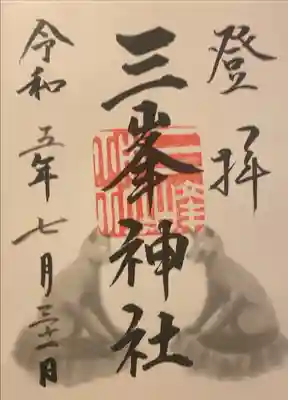 登拝
三峯神社
令和五年七月三十一日